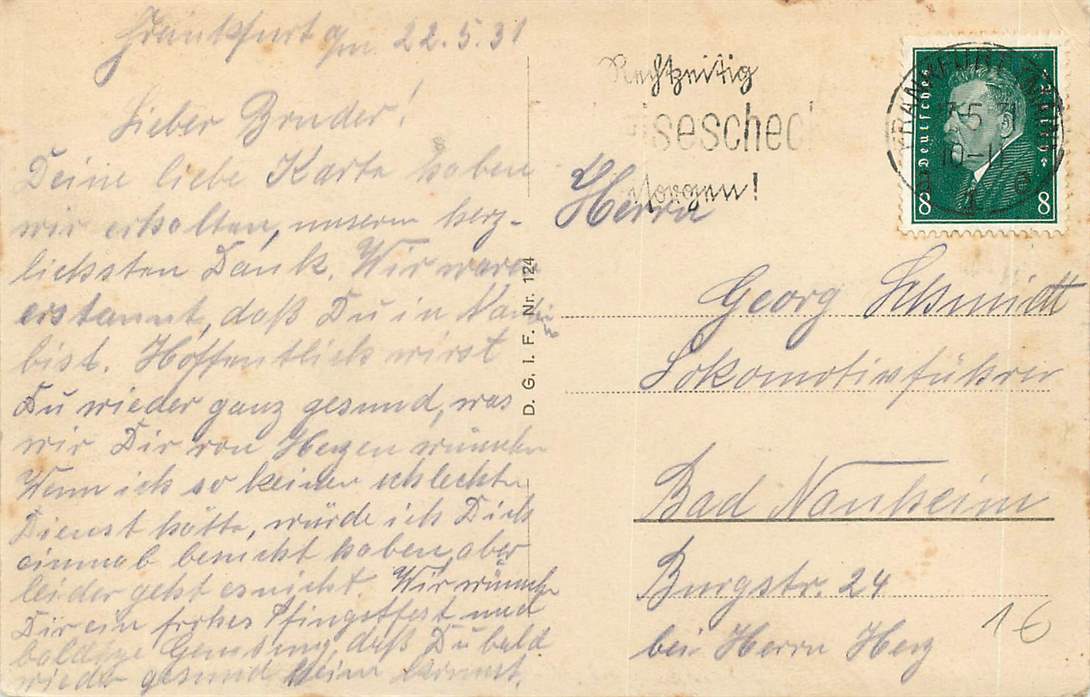 Frankfurt a/m 22.5.31
Lieber Bruder!
Deine liebe Karte haben
wir erhalten, unseren herz-
lichsten Dank. Wir waren
erstaunt, daß Du in Nauheim
bist. Hoffentlich wirst
Du wieder ganz gesund, was
wir Dir von Herzen wünschen
Wenn ich so keinen schlechten
Dienst hätte, würde ich Dich
einmal besucht haben, aber
leider geht es nicht. Wir wünschen
Dir ein frohes Pfingstfest und
baldige Genesung, daß Du bald
wieder gesund heim kommst.
D. G. I. F. Nr. 124
Rechtzeitig
isescheck
Morgen!
FRANKFURT (MAIN)
5.31
10-11
e
Deutsches Reich
8 8
Herrn
Georg Schmidt
Lokomotivführer
Bad Nauheim
Burgstr. 24
bei Herrn Herz
16